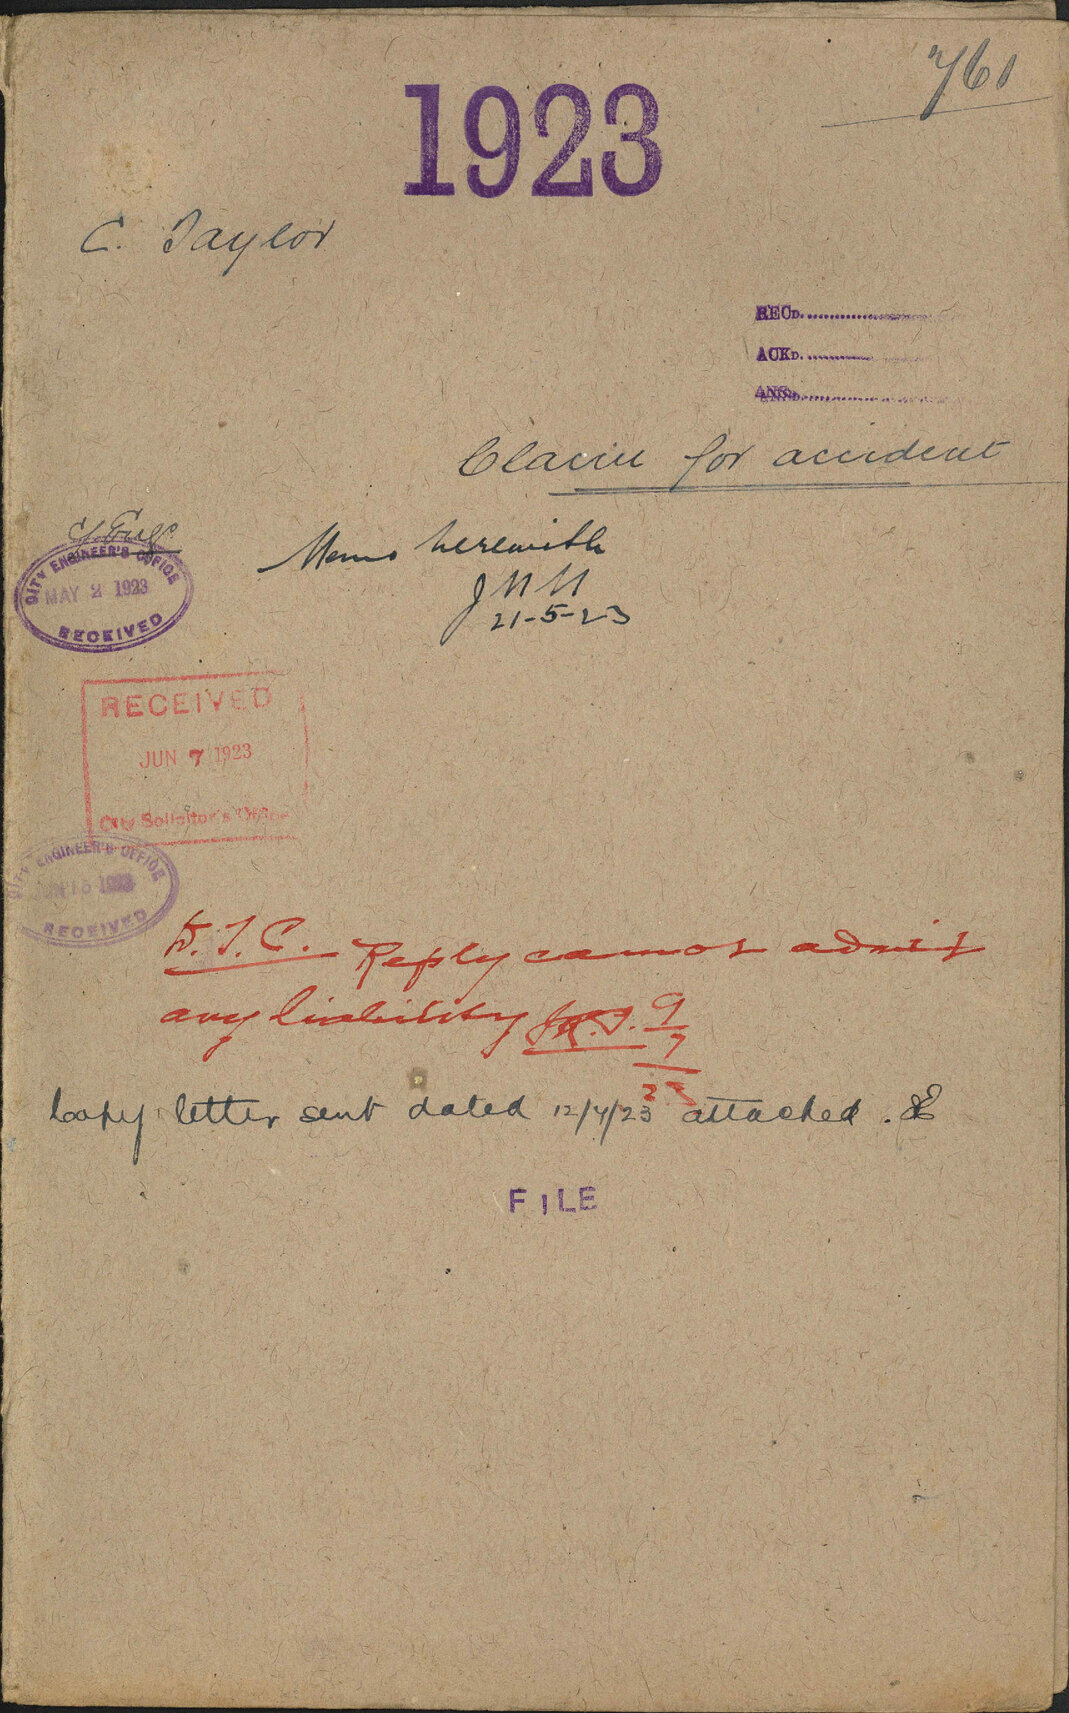 761
1923
C. Taylor
RECD.
ACKD.
ANSD.
Claim for accident
C. Engr
CITY ENGINEER'S OFFICE
MAY 2 1923
RECEIVED
Memo herewith
21-5-23
RECEIVED
JUN 7 1923
City Solicitor's Office
CITY ENGINEER'S OFFICE
1923
RECEIVED
D.T.C. Reply cannot admit
any liability 9/7/23
Copy letter sent dated 12/7/23 attached.
FILE